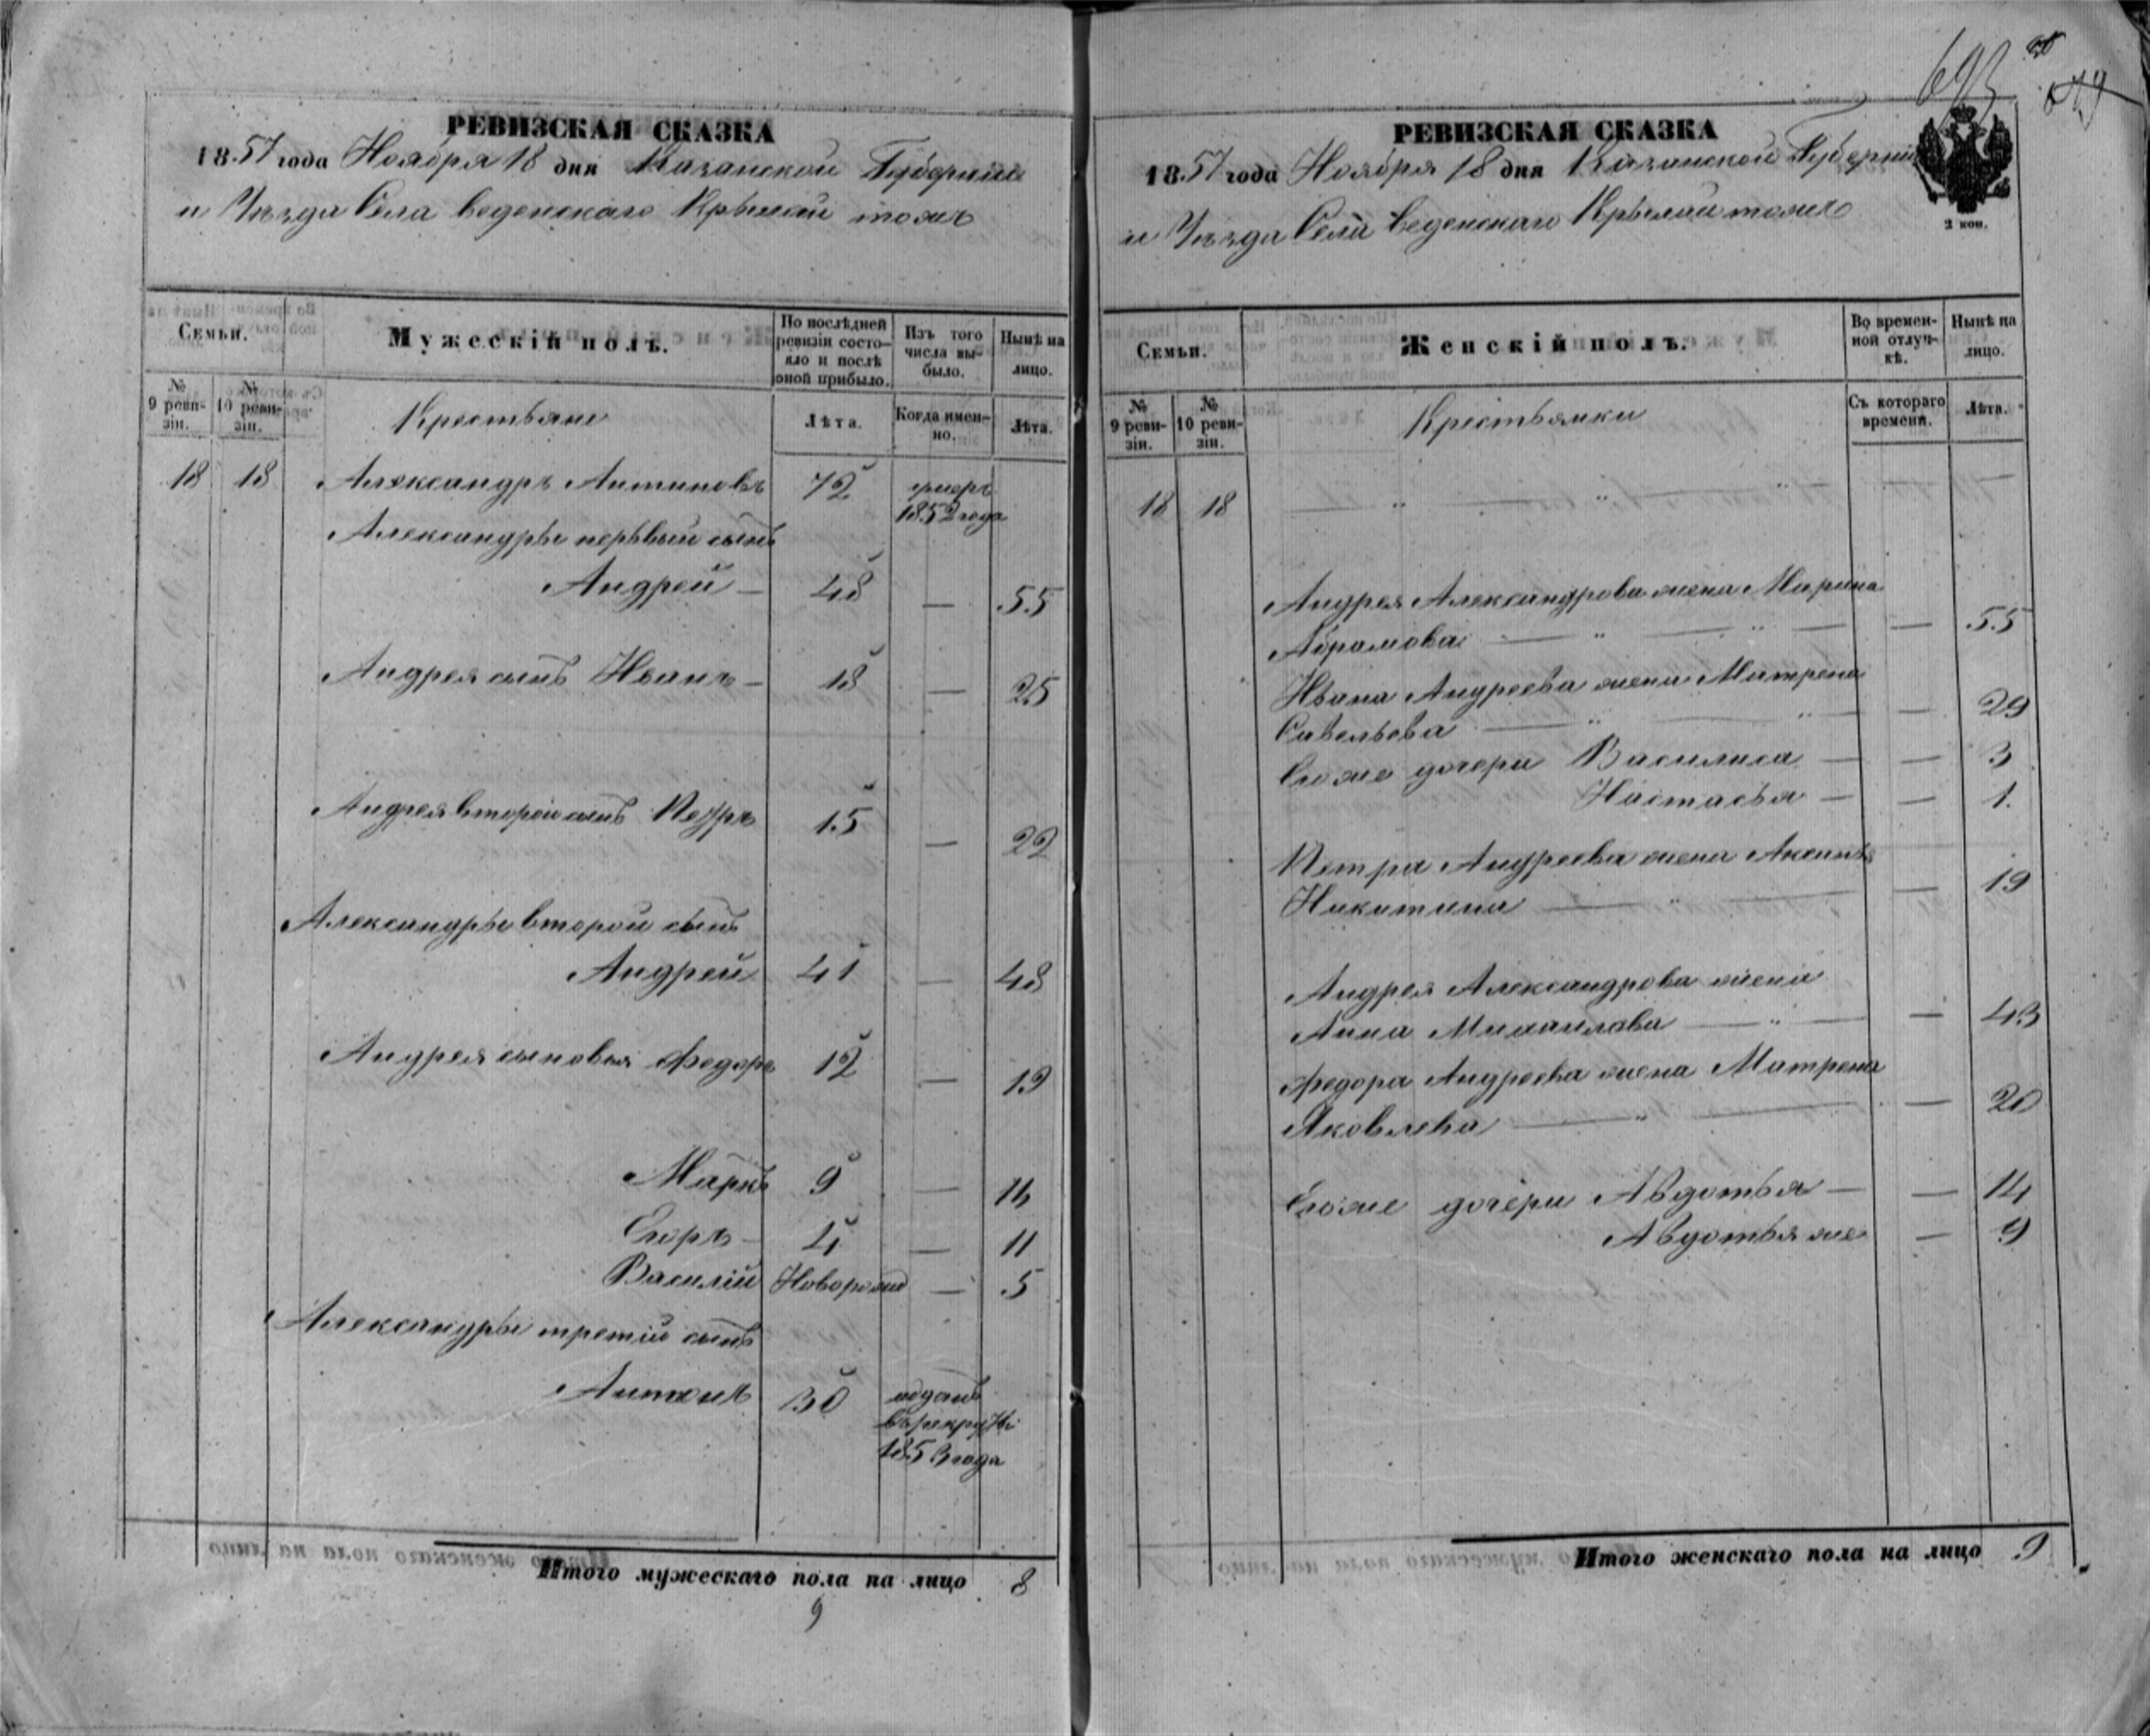 693
РЕВИЗСКАЯ СКАЗКА
1857 года Ноября 18 дня Казанской Губерніи
и Уѣзда Села Веденскаго Крылай тожъ
Семьи.
Мужескій полъ.
По послѣдней ревизіи состояло и послѣ оной прибыло.
Изъ того числа выбыло.
Нынѣ на лицо.
№ 9 ревизіи.
№ 10 ревизіи.
Крестьяне
Лѣта.
Когда именно.
Лѣта.
18 18 Александръ Антиповъ 72 умеръ
1852 года
Александры первый сынъ
Андрей — 48 — 55
Андрея сынъ Иванъ — 18 — 25
Андрея второй сынъ Петръ 15 — 22
Александры второй сынъ
Андрей 41 — 48
Андрея сыновья Федоръ 12 — 19
Маркъ 9 — 16
Егоръ — 4 — 11
Василій Новорожд — 5
Александры третій сынъ
Антонъ 30 отданъ
въ рекруты
1853 года
Итого мужескаго пола на лицо 8
9
РЕВИЗСКАЯ СКАЗКА
1857 года Ноября 18 дня Казанской Губерніи
и Уѣзда Села Веденскаго Крылай тожъ
2 коп.
Семьи.
Женскій полъ.
Во временной отлучкѣ.
Нынѣ на лицо.
№ 9 ревизіи.
№ 10 ревизіи.
Крестьянки
Съ котораго времени.
Лѣта.
18 18
Андрея Александрова жена Марина
Абрамова — " — " — — 55
Ивана Андреева жена Матрена
Савельева — " — " — — 29
Егоже дочери Василиса — — 3
Настасья — — 1.
Петра Андреева жена Аксинья
Никитина — " — — 19
Андрея Александрова жена
Анна Михайлова — " — — 43
Федора Андреева жена Матрена
Яковлева — " — — 20
Егоже дочери Авдотья — — 14
Авдотья же — 9
Итого женскаго пола на лицо 9